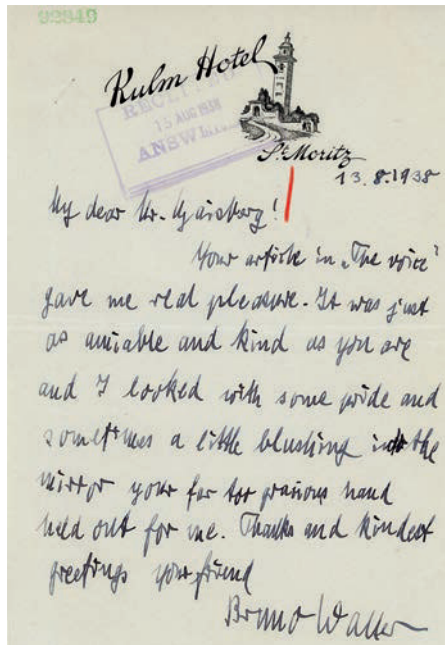 92849
Kulm Hotel
St. Moritz
RECEIVED
15 AUG 1938
ANSWERED
13.8.1938
My dear Mr. Gaisberg!
Your article in „The voice"
gave me real pleasure. It was just
as amiable and kind as you are
and I looked with some pride and
sometimes a little blushing into the
mirror your far too gracious hand
held out for me. Thanks and kindest
greetings your friend
Bruno Walter